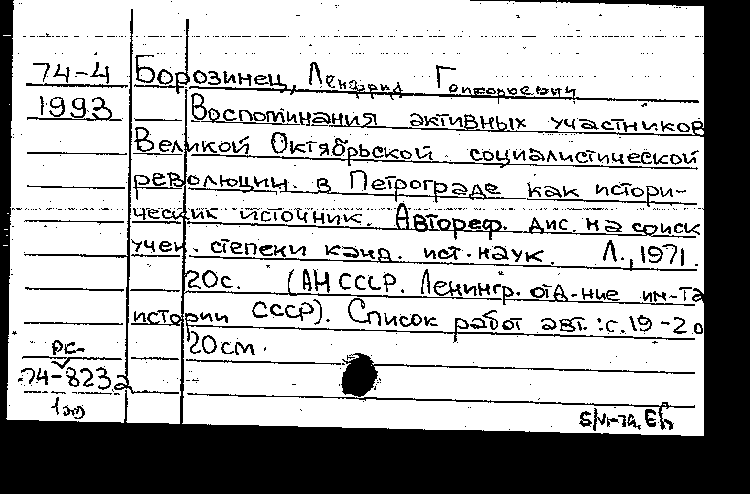 74-4 Борозинец,
1993 Воспоминания активных участников
Великой Октябрьской социалистической
революции в Петрограде как истори-
ческик источник. Автореф. дис. на соиск
учен. степени канд. ист. наук. Л., 1971.
20с. (АН СССР. Ленингр. отд-ние ин-та
истории СССР). Список работ авт.: с. 19-20
20см.
РС-
74-8232